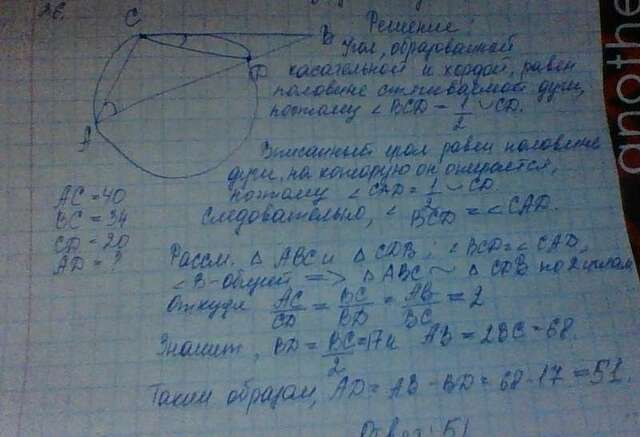 26.
Решение:
C
B
Угол, образованный
касательной и хордой, равен
D
половине стягиваемой дуги,
поэтому ∠ BCD = 1/2 ◡CD.
A
Вписанный угол равен половине
дуги, на которую он опирается,
поэтому ∠ CAD = 1/2 ◡CD
Следовательно, ∠ BCD = ∠ CAD.
AC = 40
BC = 34
CD = 20
AD = ?
Рассм. △ ABC и △ CDB; ∠ BCD = ∠ CAD,
∠ B - общий => △ ABC ~ △ CDB по 2 углам
Откуда AC/CD = BC/BD = AB/BC = 2
Значит, BD = BC/2 = 17 и AB = 2BC = 68.
Таким образом, AD = AB - BD = 68 - 17 = 51.
Ответ: 51
another